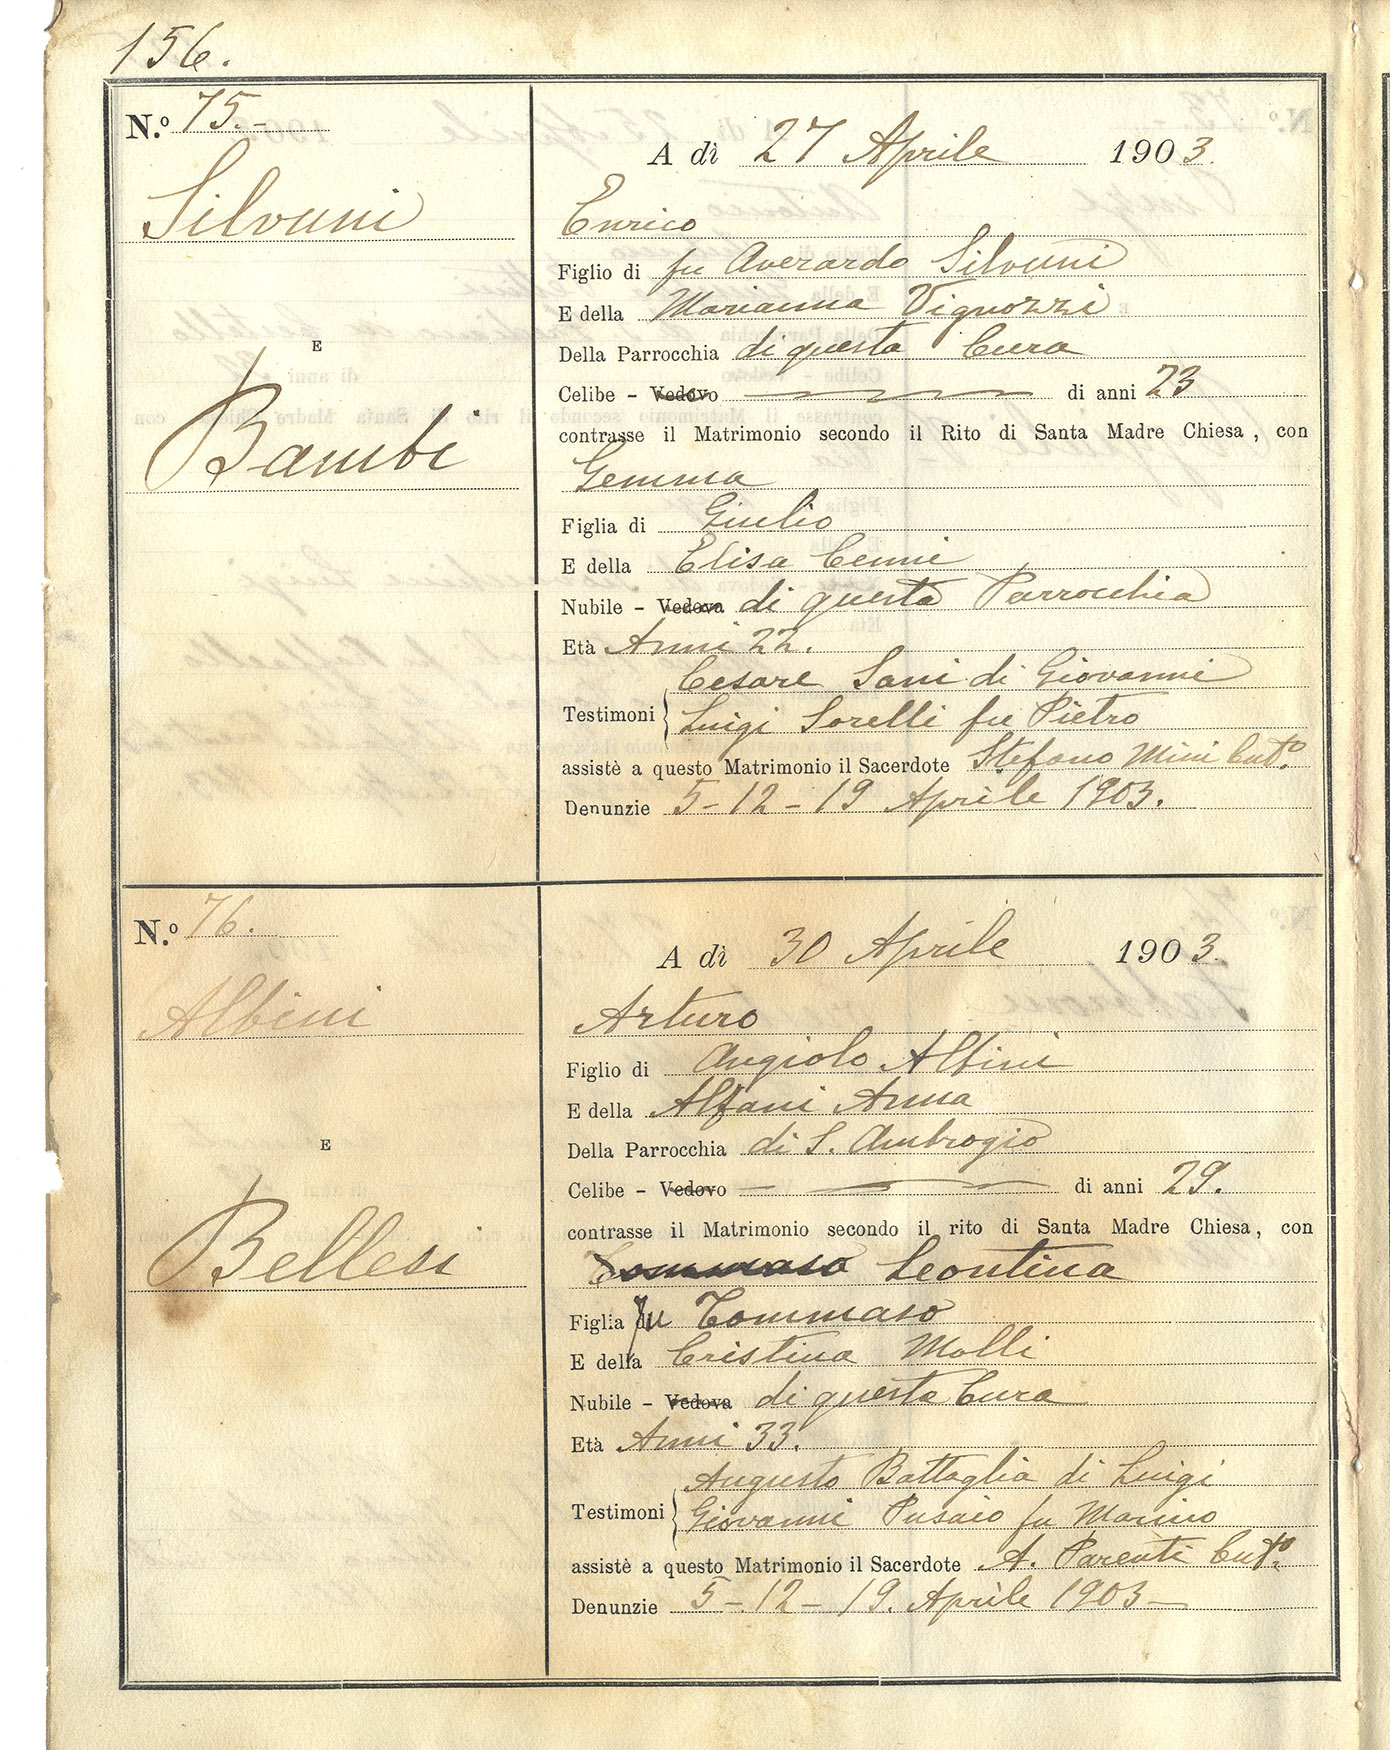 156.
N.º 75.-
Silvani
E
Bambi
A dì 27 Aprile 1903.
Enrico
Figlio di fu Averardo Silvani
E della Marianna Vignozzi
Della Parrocchia di questa Cura
Celibe - Vedovo di anni 23
contrasse il Matrimonio secondo il Rito di Santa Madre Chiesa, con
Gemma
Figlia di Giulio
E della Elisa Cenni
Nubile - Vedova di questa Parrocchia
Età Anni 22.
Cesare Sani di Giovanni
Testimoni Luigi Sorelli fu Pietro
assistè a questo Matrimonio il Sacerdote Stefano Mini Cutº.
Denunzie 5-12-19 Aprile 1903.
N.º 76.
Albini
E
Bellesi
A dì 30 Aprile 1903.
Arturo
Figlio di Angiolo Albini
E della Alfani Anna
Della Parrocchia di S. Ambrogio
Celibe - Vedovo di anni 29.
contrasse il Matrimonio secondo il rito di Santa Madre Chiesa, con
Tommaso Leontina
Figlia fu Tommaso
E della Cristina Molli
Nubile - Vedova di questa Cura
Età Anni 33.
Augusto Battaglia di Luigi
Testimoni Giovanni fu Marino
assistè a questo Matrimonio il Sacerdote A. Parenti Cutº.
Denunzie 5-12-19. Aprile 1903-